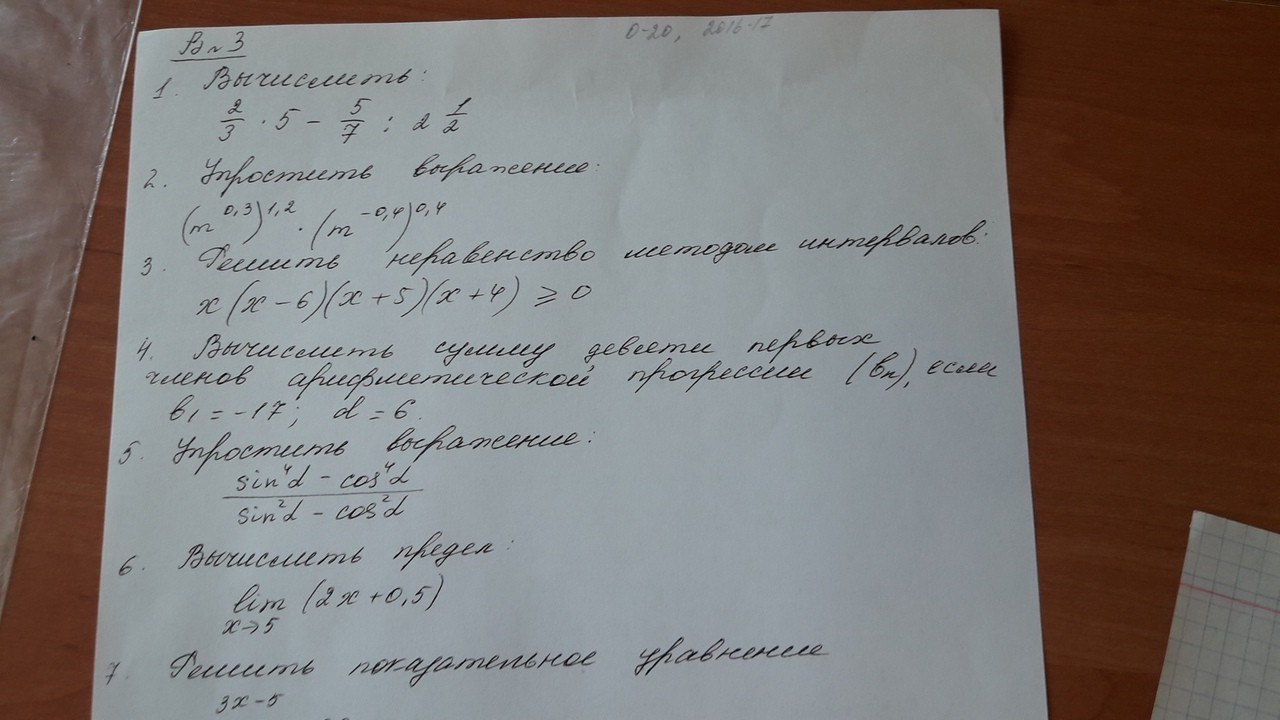 О-20, 2016-17
Вн 3
1. Вычислить:
2/3 · 5 - 5/7 : 2 1/2
2. Упростить выражение:
(m^0,3)^1,2 · (m^-0,4)^0,4
3. Решить неравенство методом интервалов:
x(x-6)(x+5)(x+4) ≥ 0
4. Вычислить сумму девяти первых
членов арифметической прогрессии (вn), если
в1 = -17; d = 6.
5. Упростить выражение:
sin⁴α - cos⁴α
sin²α - cos²α
6. Вычислить предел:
lim (2x+0,5)
x→5
7. Решить показательное уравнение
3x-5